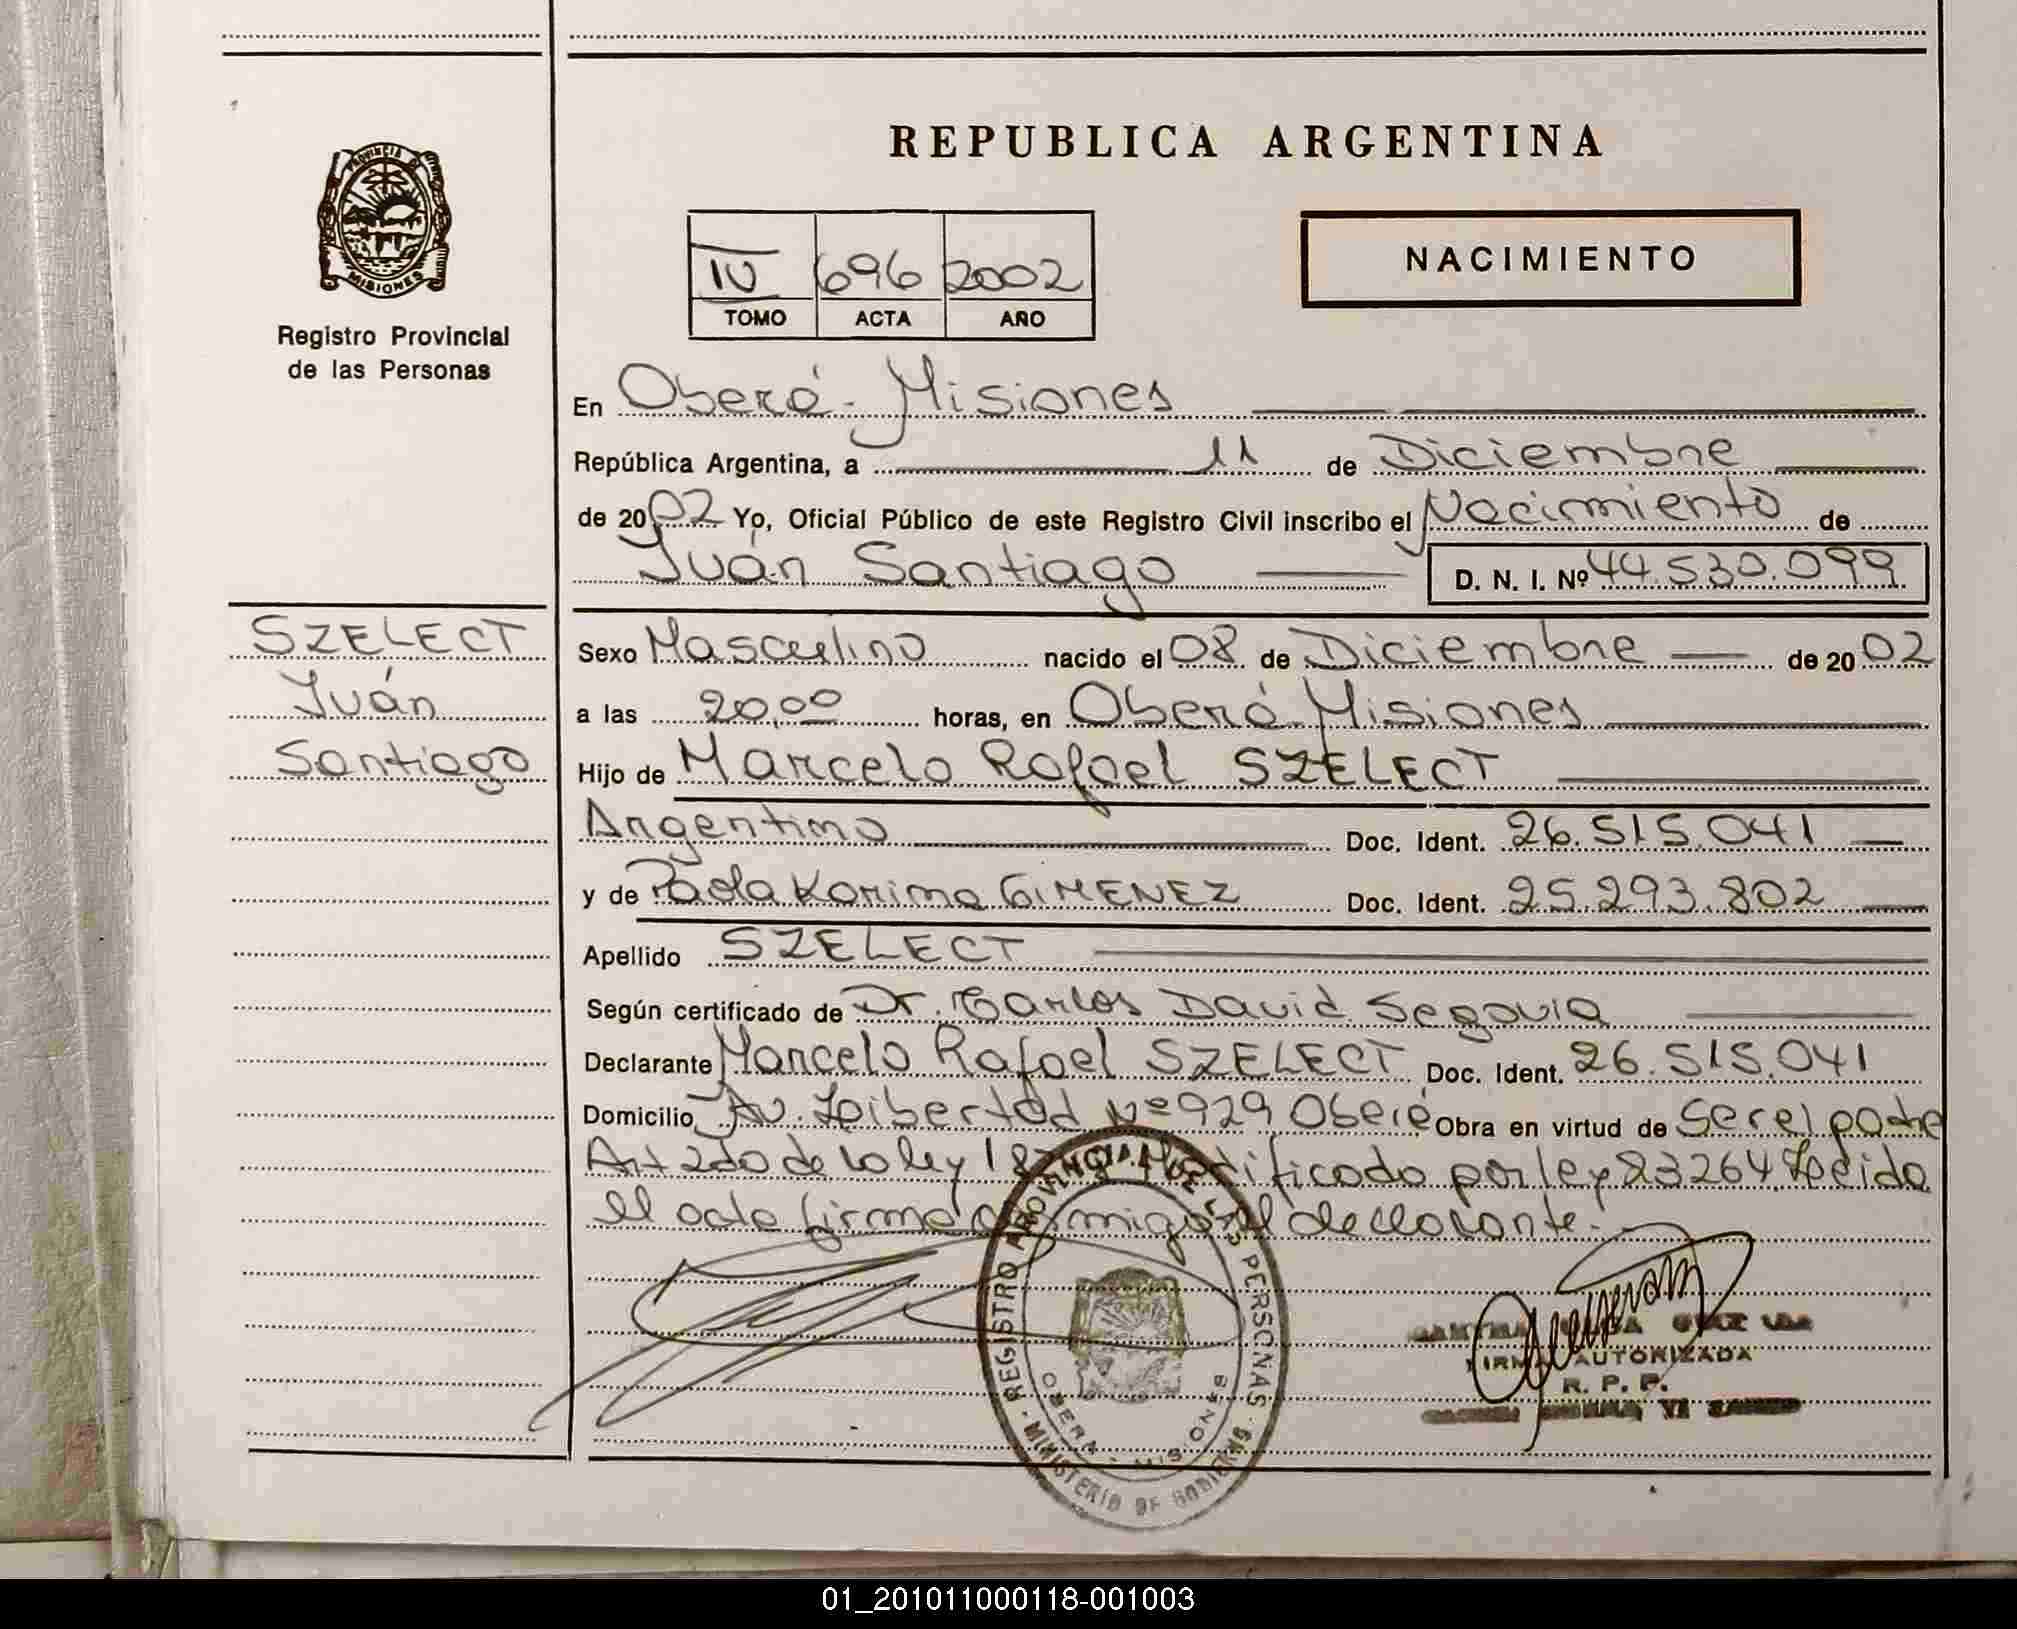 REPUBLICA ARGENTINA
PROVINCIA DE
MISIONES
Registro Provincial
de las Personas
IV 696 2002
TOMO ACTA AÑO
NACIMIENTO
En Oberá - Misiones
República Argentina, a 11 de Diciembre
de 2002 Yo, Oficial Público de este Registro Civil inscribo el Nacimiento de
Iván Santiago D. N. I. Nº 44.530.099
SZELECT
Iván
Santiago
Sexo Masculino nacido el 08 de Diciembre de 20 02
a las 20,00 horas, en Oberá - Misiones
Hijo de Marcelo Rafael SZELECT
Argentino Doc. Ident. 26.515.041
y de Paola Karina GIMENEZ Doc. Ident. 25.293.802
Apellido SZELECT
Según certificado de Dr. Carlos David Segovia
Declarante Marcelo Rafael SZELECT Doc. Ident. 26.515.041
Domicilio Av. Libertad Nº 929 Oberá Obra en virtud de Ser el padre
Art 2do de la ley 18 Modificado por ley 23264 Leida
el acta firma conmigo el declarante.
REGISTRO PROVINCIAL DE LAS PERSONAS - MINISTERIO DE GOBIERNO
OBERA - MISIONES
FIRMA AUTORIZADA
R. P. P.
01_201011000118-001003